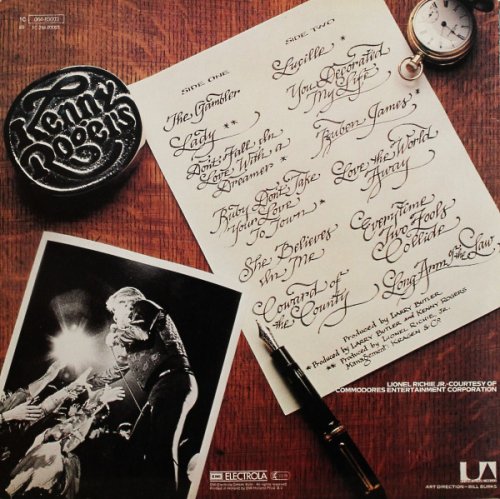 Kenny
Rogers
SIDE ONE
The Gambler
Lady **
Don't Fall In
Love With a
Dreamer *
Ruby Don't Take
Your Love
To Town *
She Believes
In Me
Coward of
the County
SIDE TWO
Lucille *
You Decorated
My Life
Ruben James *
Love the World
Away
Everytime
Two Fools
Collide
Long Arm of the Law
Produced by LARRY BUTLER
* Produced by LARRY BUTLER and KENNY ROGERS
** Produced by LIONEL RICHIE JR.
Management: KRAGEN & CO
LIONEL RICHIE JR.-COURTESY OF
COMMODORES ENTERTAINMENT CORPORATION
EMI ELECTROLA
UA
ART DIRECTION - BILL BURKS